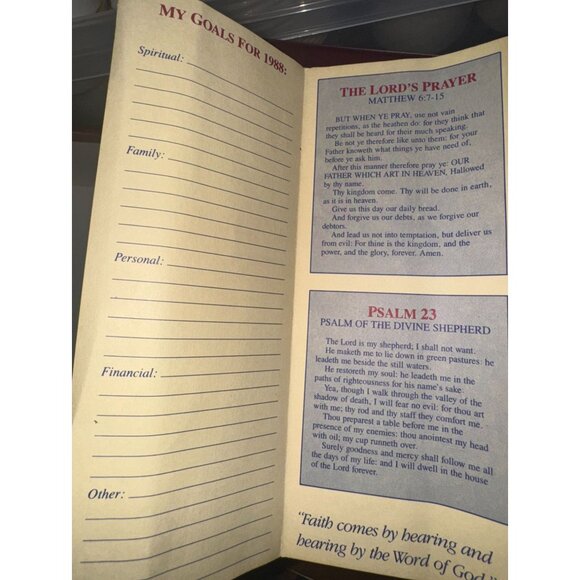 MY GOALS FOR 1988:
Spiritual:
Family:
Personal:
Financial:
Other:
THE LORD'S PRAYER
MATTHEW 6:7-15
BUT WHEN YE PRAY, use not vain
repetitions, as the heathen do: for they think that
they shall be heard for their much speaking.
Be not ye therefore like unto them: for your
Father knoweth what things ye have need of,
before ye ask him.
After this manner therefore pray ye: OUR
FATHER WHICH ART IN HEAVEN, Hallowed
by thy name.
Thy kingdom come. Thy will be done in earth,
as it is in heaven.
Give us this day our daily bread.
And forgive us our debts, as we forgive our
debtors.
And lead us not into temptation, but deliver us
from evil: For thine is the kingdom, and the
power, and the glory, forever. Amen.
PSALM 23
PSALM OF THE DIVINE SHEPHERD
The Lord is my shepherd; I shall not want.
He maketh me to lie down in green pastures: he
leadeth me beside the still waters.
He restoreth my soul: he leadeth me in the
paths of righteousness for his name's sake
Yea, though I walk through the valley of the
shadow of death, I will fear no evil: for thou art
with me; thy rod and thy staff they comfort me.
Thou preparest a table before me in the
presence of my enemies: thou anointest my head
with oil; my cup runneth over.
Surely goodness and mercy shall follow me all
the days of my life: and I will dwell in the house
of the Lord forever.
"Faith comes by hearing and
hearing by the Word of God."